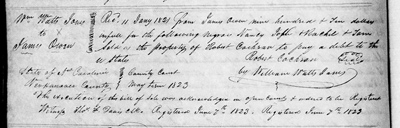 Wm Watts Jones
to
James Owen
Recd 11 Jany 1821 from James Owen nine hundred & Ten dollars
in full for the following negroes Nancy Jeff & Rachel & Tom
sold as the property of Robert Cochran to pay a debt to the
U States
Robert Cochran
by William Watts Jones
State of No Carolina
New Hanover County
County Court
May Term 1823
The execution of this bill of sale was acknowledged in open Court & ordered to be Registered
Witness Thos. F. Davis Clk Registered June 7th 1823. Registered June 7th 1823